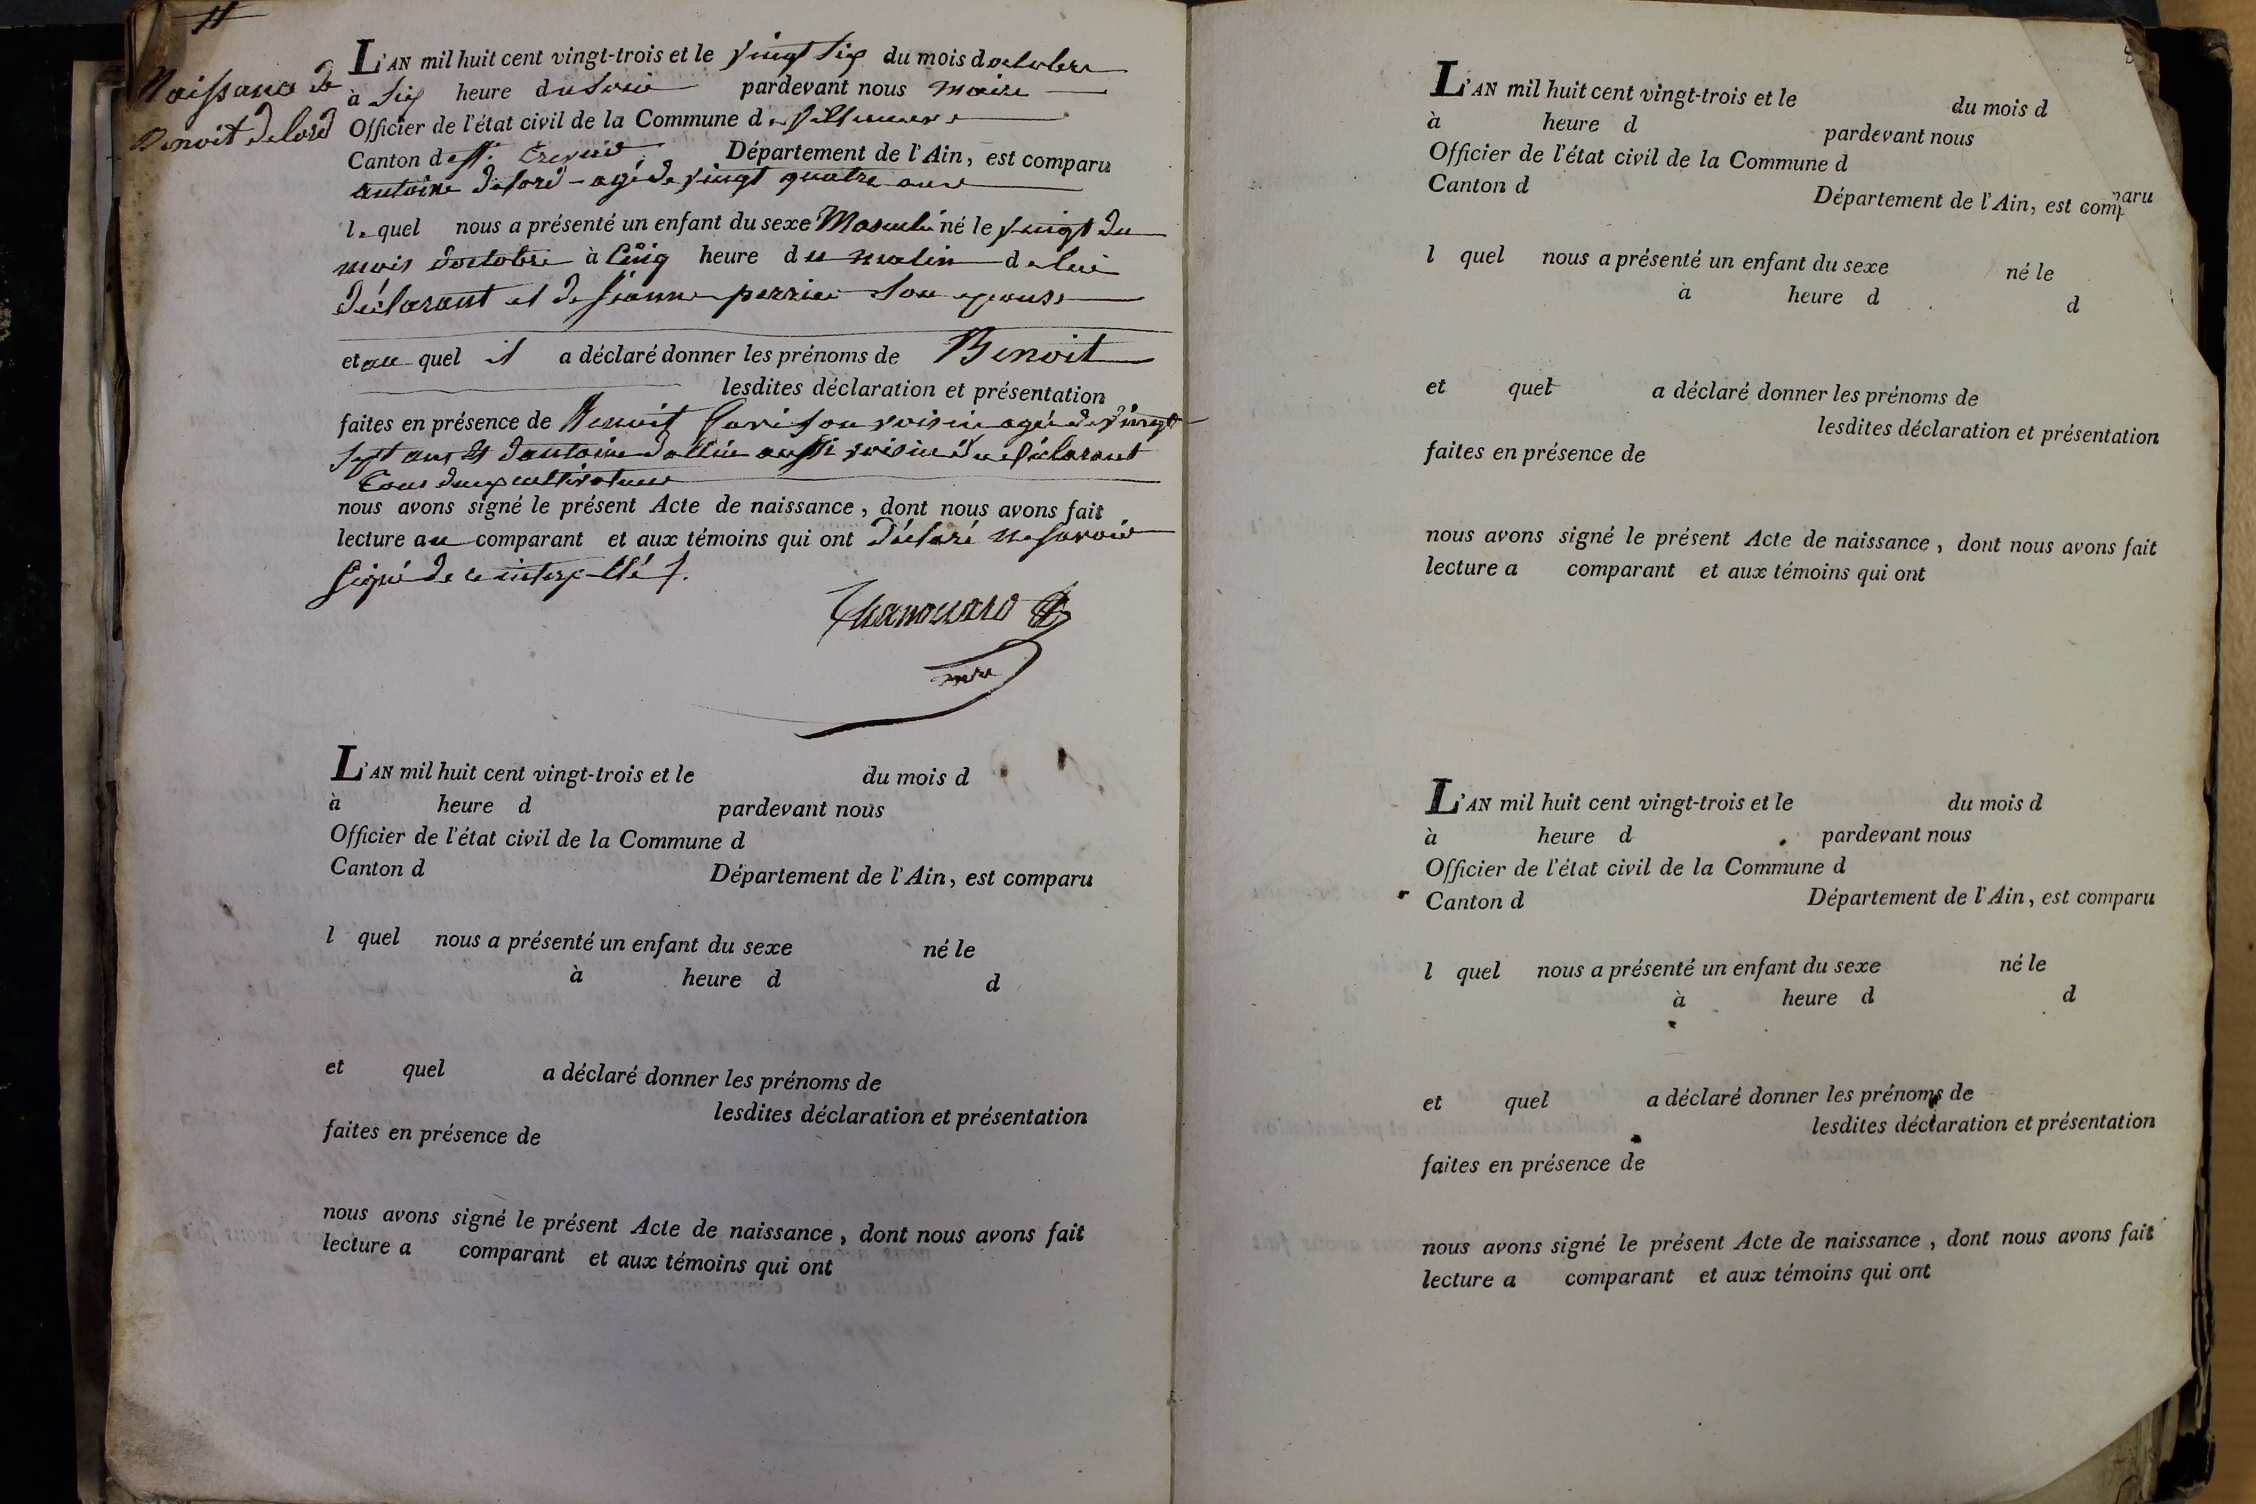 11
Naissance de
Benoit delord
L'AN mil huit cent vingt-trois et le vingt six du mois doctobre
à six heure du soir pardevant nous maire
Officier de l'état civil de la Commune de Villeneuve
Canton de St. trevier Département de l'Ain, est comparu
antoine delord agé de vingt quatre ans
le quel nous a présenté un enfant du sexe Masculin né le vingt du
mois doctobre à Cinq heure du matin de lui
déclarant et de jeanne perrier son epouse
et au quel il a déclaré donner les prénoms de Benoit
lesdites déclaration et présentation
faites en présence de Benoit voisin agé de vingt
sept ans et dantoine aussi voisin du déclarant
tous deux cultivateurs
nous avons signé le présent Acte de naissance, dont nous avons fait
lecture au comparant et aux témoins qui ont déclaré ne savoir
signé de ce interpellé
mre
L'AN mil huit cent vingt-trois et le du mois d
à heure d pardevant nous
Officier de l'état civil de la Commune d
Canton d Département de l'Ain, est comparu
l quel nous a présenté un enfant du sexe né le
à heure d d
et quel a déclaré donner les prénoms de
lesdites déclaration et présentation
faites en présence de
nous avons signé le présent Acte de naissance, dont nous avons fait
lecture a comparant et aux témoins qui ont
L'AN mil huit cent vingt-trois et le du mois d
à heure d pardevant nous
Officier de l'état civil de la Commune d
Canton d Département de l'Ain, est comparu
l quel nous a présenté un enfant du sexe né le
à heure d d
et quel a déclaré donner les prénoms de
lesdites déclaration et présentation
faites en présence de
nous avons signé le présent Acte de naissance, dont nous avons fait
lecture a comparant et aux témoins qui ont
L'AN mil huit cent vingt-trois et le du mois d
à heure d pardevant nous
Officier de l'état civil de la Commune d
Canton d Département de l'Ain, est comparu
l quel nous a présenté un enfant du sexe né le
à heure d d
et quel a déclaré donner les prénoms de
lesdites déclaration et présentation
faites en présence de
nous avons signé le présent Acte de naissance, dont nous avons fait
lecture a comparant et aux témoins qui ont